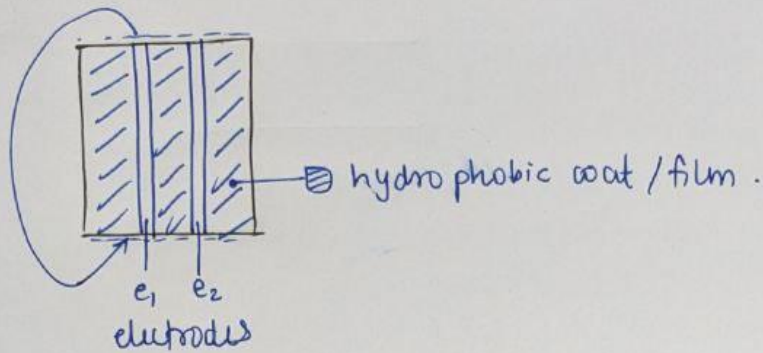 hydrophobic coat / film.
e1 e2
electrodes